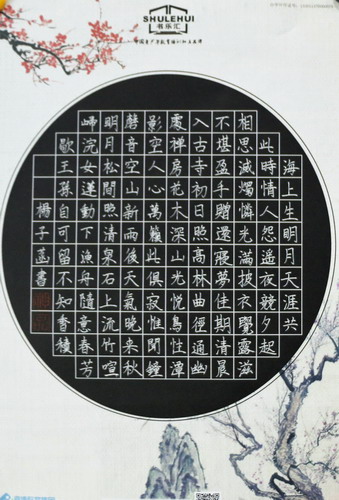 SHULEHUI
书乐汇
海上生明月天涯共
此時情人怨遙夜競夕起
相思滅燭憐光滿披衣覺露滋
不堪盈手贈還寢夢佳期清晨
入古寺初日照高林曲徑通幽
處禪房花木深山光悅鳥性潭
影空人心萬籟此俱寂惟聞鐘
磬音空山新雨後天氣晚來秋
明月松間照清泉石上流竹喧
歸浣女蓮動下漁舟隨意春芳
歇王孫自可留不知香積
楊子書